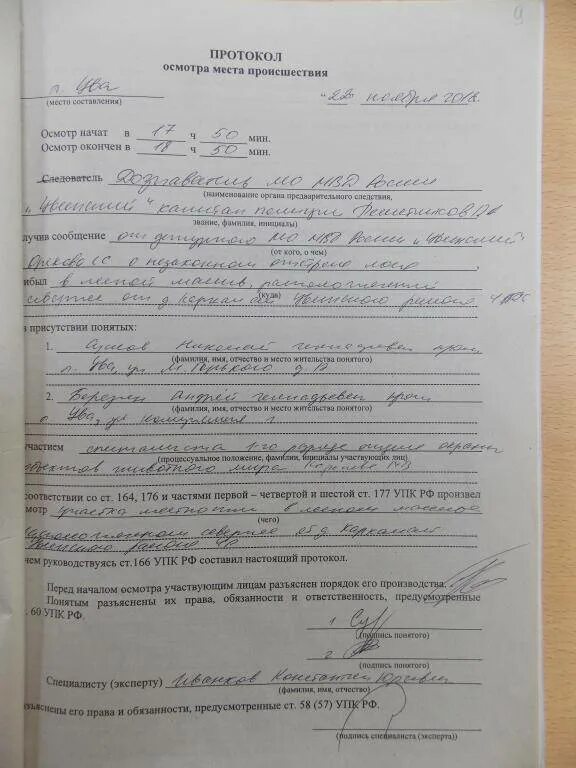 9
ПРОТОКОЛ
осмотра места происшествия
п. Ува
(место составления)
"22" ноября 2018г.
Осмотр начат в 17 ч 50 мин.
Осмотр окончен в 18 ч 50 мин.
Следователь Дознаватель МО МВД России
(наименование органа предварительного следствия,
"Увинский" капитан полиции
звание, фамилия, инициалы)
лучив сообщение от дежурного МО МВД России "Увинский"
(от кого, о чем)
о незаконном отстреле лося
ибыл в лесной массив, расположенный
(куда)
севернее от д. Каркалай Увинского района УР
в присутствии понятых:
1. Николай Геннадьевич
(фамилия, имя, отчество и место жительства понятого)
п. Ува, ул. М. Горького д.
2. Андрей Геннадьевич
(фамилия, имя, отчество и место жительства понятого)
п. Ува, ул.
участием специалиста 1-го разряда отдела охраны
(процессуальное положение, фамилия, инициалы участвующих лиц)
объектов животного мира
соответствии со ст. 164, 176 и частями первой – четвертой и шестой ст. 177 УПК РФ произвел
мотр участка местности в лесном массиве
(чего)
расположенном севернее от д. Каркалай
Увинского района УР
чем руководствуясь ст.166 УПК РФ составил настоящий протокол.
Перед началом осмотра участвующим лицам разъяснен порядок его производства.
Понятым разъяснены их права, обязанности и ответственность, предусмотренные
. 60 УПК РФ.
1
(подпись понятого)
2
(подпись понятого)
Специалисту (эксперту) Иванков Константин Юрьевич
(фамилия, имя, отчество)
зъяснены его права и обязанности, предусмотренные ст. 58 (57) УПК РФ.
(подпись специалиста (эксперта))